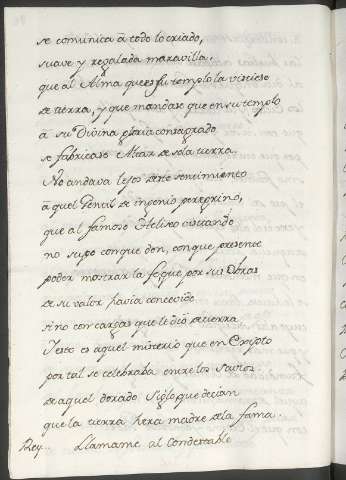 se comunica a todo lo criado,
suave y regalada maravilla.
que al Alma que es su templo la vistiese
de tierra, y que mandase que en su templo
a su Divina gloria consagrado
se fabricase Altar de sola tierra.
No andava lejos deste sentimiento
aquel Gentil de ingenio peregrino,
que al famoso Heliseo visitando
no supo con que don, con que presente
poder mostrar la fe que por sus Obras
de su valor havia concevido
sino con cargas que le dio de tierra
Y este es aquel misterio que en Egipto
por tal se celebraba entre los Savios.
de aquel dorado Siglo que decian
que la tierra hera madre de la fama.
Rey.. Llamame al Condestable